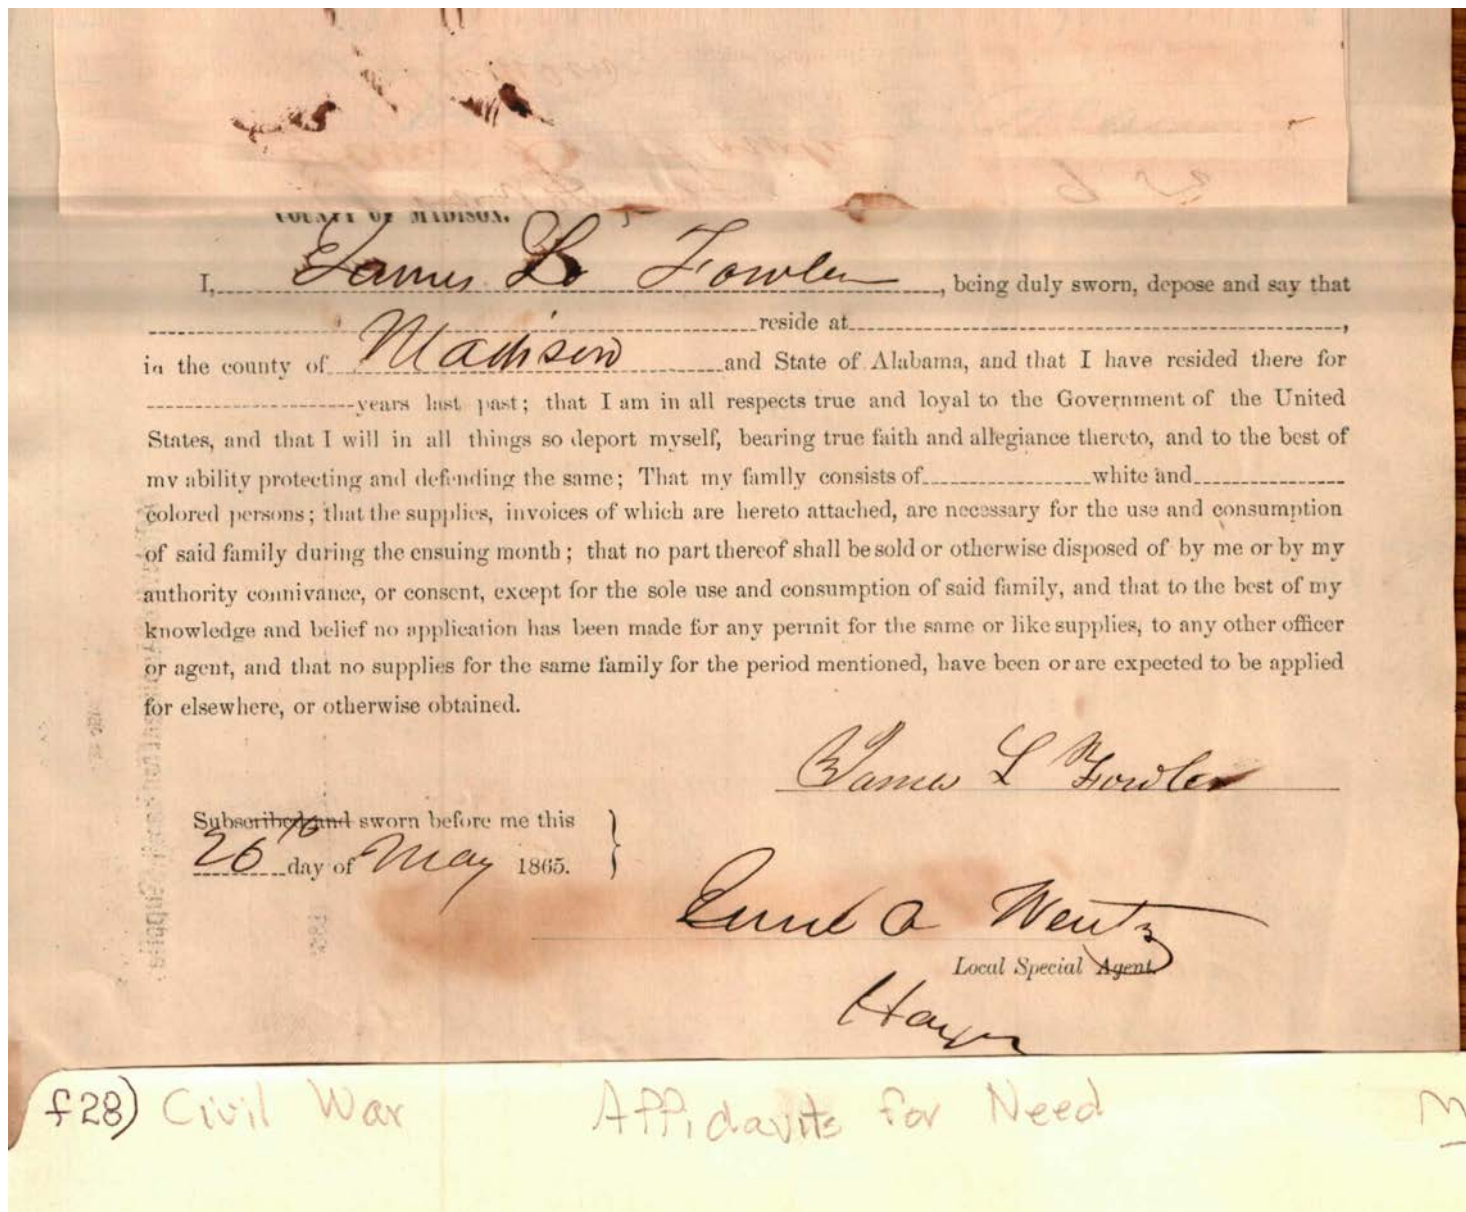 COUNTY OF MADISON.
I, James L Fowler, being duly sworn, depose and say that
reside at,
in the county of Madison and State of Alabama, and that I have resided there for
years last past; that I am in all respects true and loyal to the Government of the United
States, and that I will in all things so deport myself, bearing true faith and allegiance thereto, and to the best of
my ability protecting and defending the same; That my familly consists of white and
colored persons; that the supplies, invoices of which are hereto attached, are necessary for the use and consumption
of said family during the ensuing month; that no part thereof shall be sold or otherwise disposed of by me or by my
authority connivance, or consent, except for the sole use and consumption of said family, and that to the best of my
knowledge and belief no application has been made for any permit for the same or like supplies, to any other officer
or agent, and that no supplies for the same family for the period mentioned, have been or are expected to be applied
for elsewhere, or otherwise obtained.
James L Fowler
Subscribed and sworn before me this
26th day of May 1865.
Wentz
Local Special Agent.
f28) Civil War Affidavits for Need M